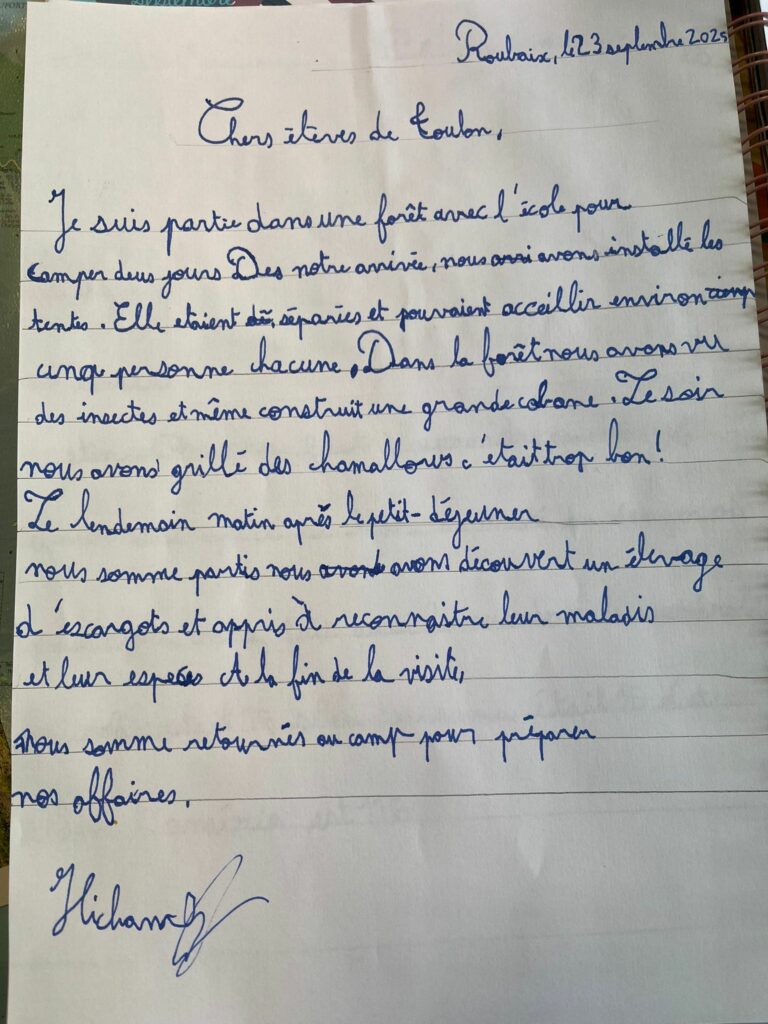 Roubaix, le 23 septembre 2025
Chers élèves de Toulon,
Je suis partie dans une forêt avec l'école pour
camper deus jours Des notre arrivée, nous avons installé les
tentes. Elle etaient séparées et pouvaient acceillir environ
cinq personne chacune. Dans la forêt nous avons vu
des insectes et même construit une grande cabane. Le soir
nous avons grillé des chamallows c'était trop bon!
Le lendemain matin après le petit-déjeuner
nous somme partis nous avons découvert un élevage
d'escargots et appris à reconnaitre leur maladis
et leur espèces A la fin de la visite,
nous somme retournés au camp pour préparer
nos affaires.
Hicham